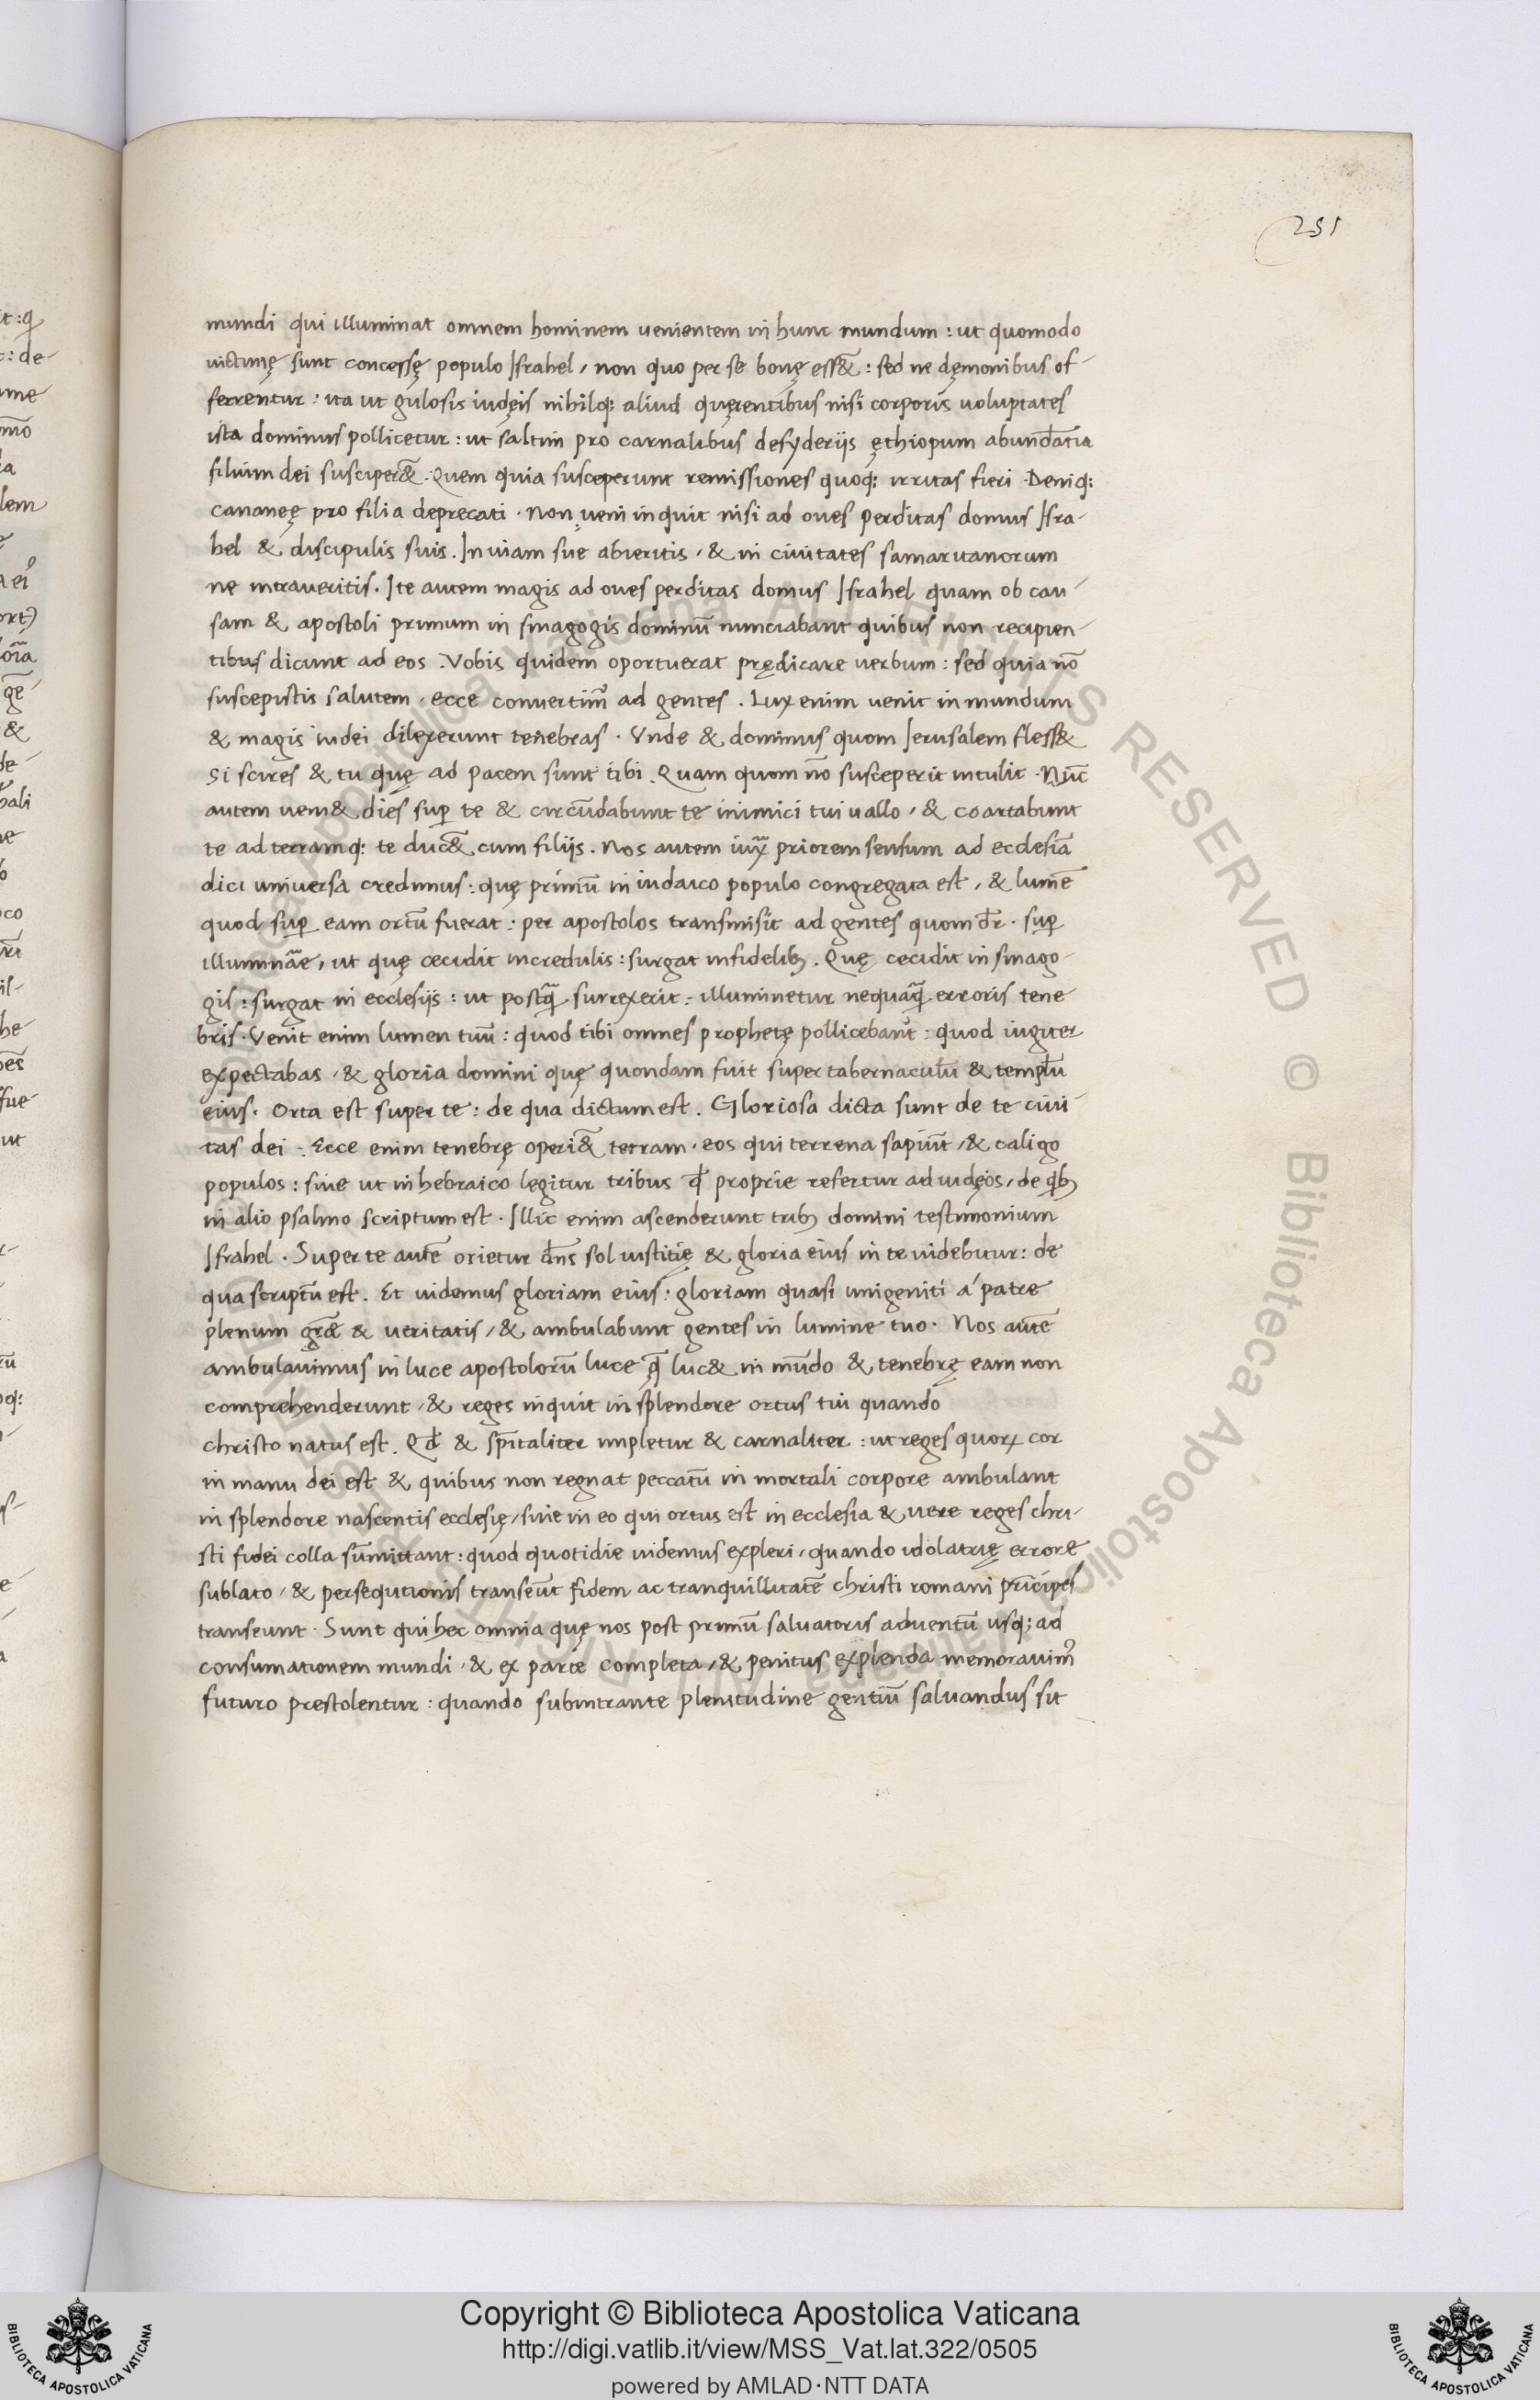 251
mundi qui illuminat omnem hominem uenientem in hunc mundum : ut quomodo
uictimę sunt concessę populo Israhel / non quo per se bonę ess&̃ : sed ne dęmonibus of-
ferrentur : ita ut gulosis iudęis nihilq; aliud quęrentibus nisi corporis uoluptates
ista dominus pollicetur : ut saltim pro carnalibus desyderijs ęthiopum abundãtia
filium dei susciper&̃ . Quem quia susceperunt remissiones quoq; irritas fieri . Deniq;
cananeę pro filia deprecati . Non ueni inquit nisi ad oues perditas domus Isra-
hel & discipulis suis . In uiam sue abieritis / & in ciuitates samaritanorum
ne intraueritis . Ite autem magis ad oues perditas domus Israhel quam ob cau-
sam & apostoli primum in sinagogis dominũ nunciabant quibus non recipien-
tibus dicunt ad eos . Vobis quidem oportuerat prędicare uerbum : sed quia nõ
suscepistis salutem . ecce conuertim᷒ ad gentes . Lux enim uenit in mundum
& magis iudei dilexerunt tenebras . Vnde & dominus quom Jerusalem fless&
Si scires & tu quę ad pacem sunt tibi . Quam quom nõ susceperit intulit . Nũc
autem ueni& dies sup̱ te & circũdabunt te inimici tui uallo / & coartabunt
te ad terramq; te duc&̃ cum filijs . Nos autem iuxᷓ priorem sensum ad ecclesiã
dici uniuersa credimus : quę primũ in iudaico populo congregata est / & lumẽ
quod sup̱ eam ortũ fuerat : per apostolos transmisit ad gentes quom dr̃ . sup̱
illuminãe , ut quę cecidit incredulis : surgat in fidelibꝫ . Quę cecidit in sinago-
gis : surgat in ecclesijs : ut postꝗᷓ surrexerit : illuminetur nequaꝗᷓ erroris tene
bris . Venit enim lumen tuũ : quod tibi omnes prophetę pollicebant᷑ : quod iugiter
expectabas / & gloria domini quę quondam fuit super tabernaculũ & templũ
eius . Orta est super te : de qua dictum est . Gloriosa dicta sunt de te ciui-
tas dei . Ecce enim tenebrę operi&̃ terram . eos qui terrena sapiũt / & caligo
populos : siue ut in hebraico legitur tribus ꝙ proprie refertur ad iudęos / de qͥbꝫ
in alio psalmo scriptum est . Illic enim ascenderunt tribꝫ domini testimonium
Israhel . Super te autẽ orietur dñs sol iustitię & gloria eius in te uidebitur : de
qua scriptũ est . Et uidemus gloriam eius : gloriam quasi unigeniti á patre
plenum gr̃æ & ueritatis / & ambulabunt gentes in lumine tuo . Nos autẽ
ambulauimus in luce apostolorũ luce q̃ luc& in mũdo & tenebrę eam non
comprehenderunt / & reges inquit in splendore ortus tui quando
christo natus est . Qđ & sp̃italiter impletur & carnaliter : ut reges quoꝝ cor
in manu dei est & quibus non regnat peccatũ in mortali corpore ambulant
in splendore nascentis ecclesię / siue in eo qui ortus est in ecclesia & uere reges chri-
sti fidei colla sũmittant : quod quotidie uidemus expleri / quando idolatrię errore
sublato / & persequtionis transeũt fidem ac tranquillitatẽ christi romani prĩcipes
transeunt . Sunt qui hec omnia quę nos post primũ saluatoris aduentũ usq; ad
consumationem mundi / & ex parte completa / & penitus explenda memorauim᷒
futuro prestolentur : quando subintrante plenitudine gentiũ saluandus sit
Copyright © Biblioteca Apostolica Vaticana
http://digi.vatlib.it/view/MSS_Vat.lat.322/0505
powered by AMLAD·NTT DATA